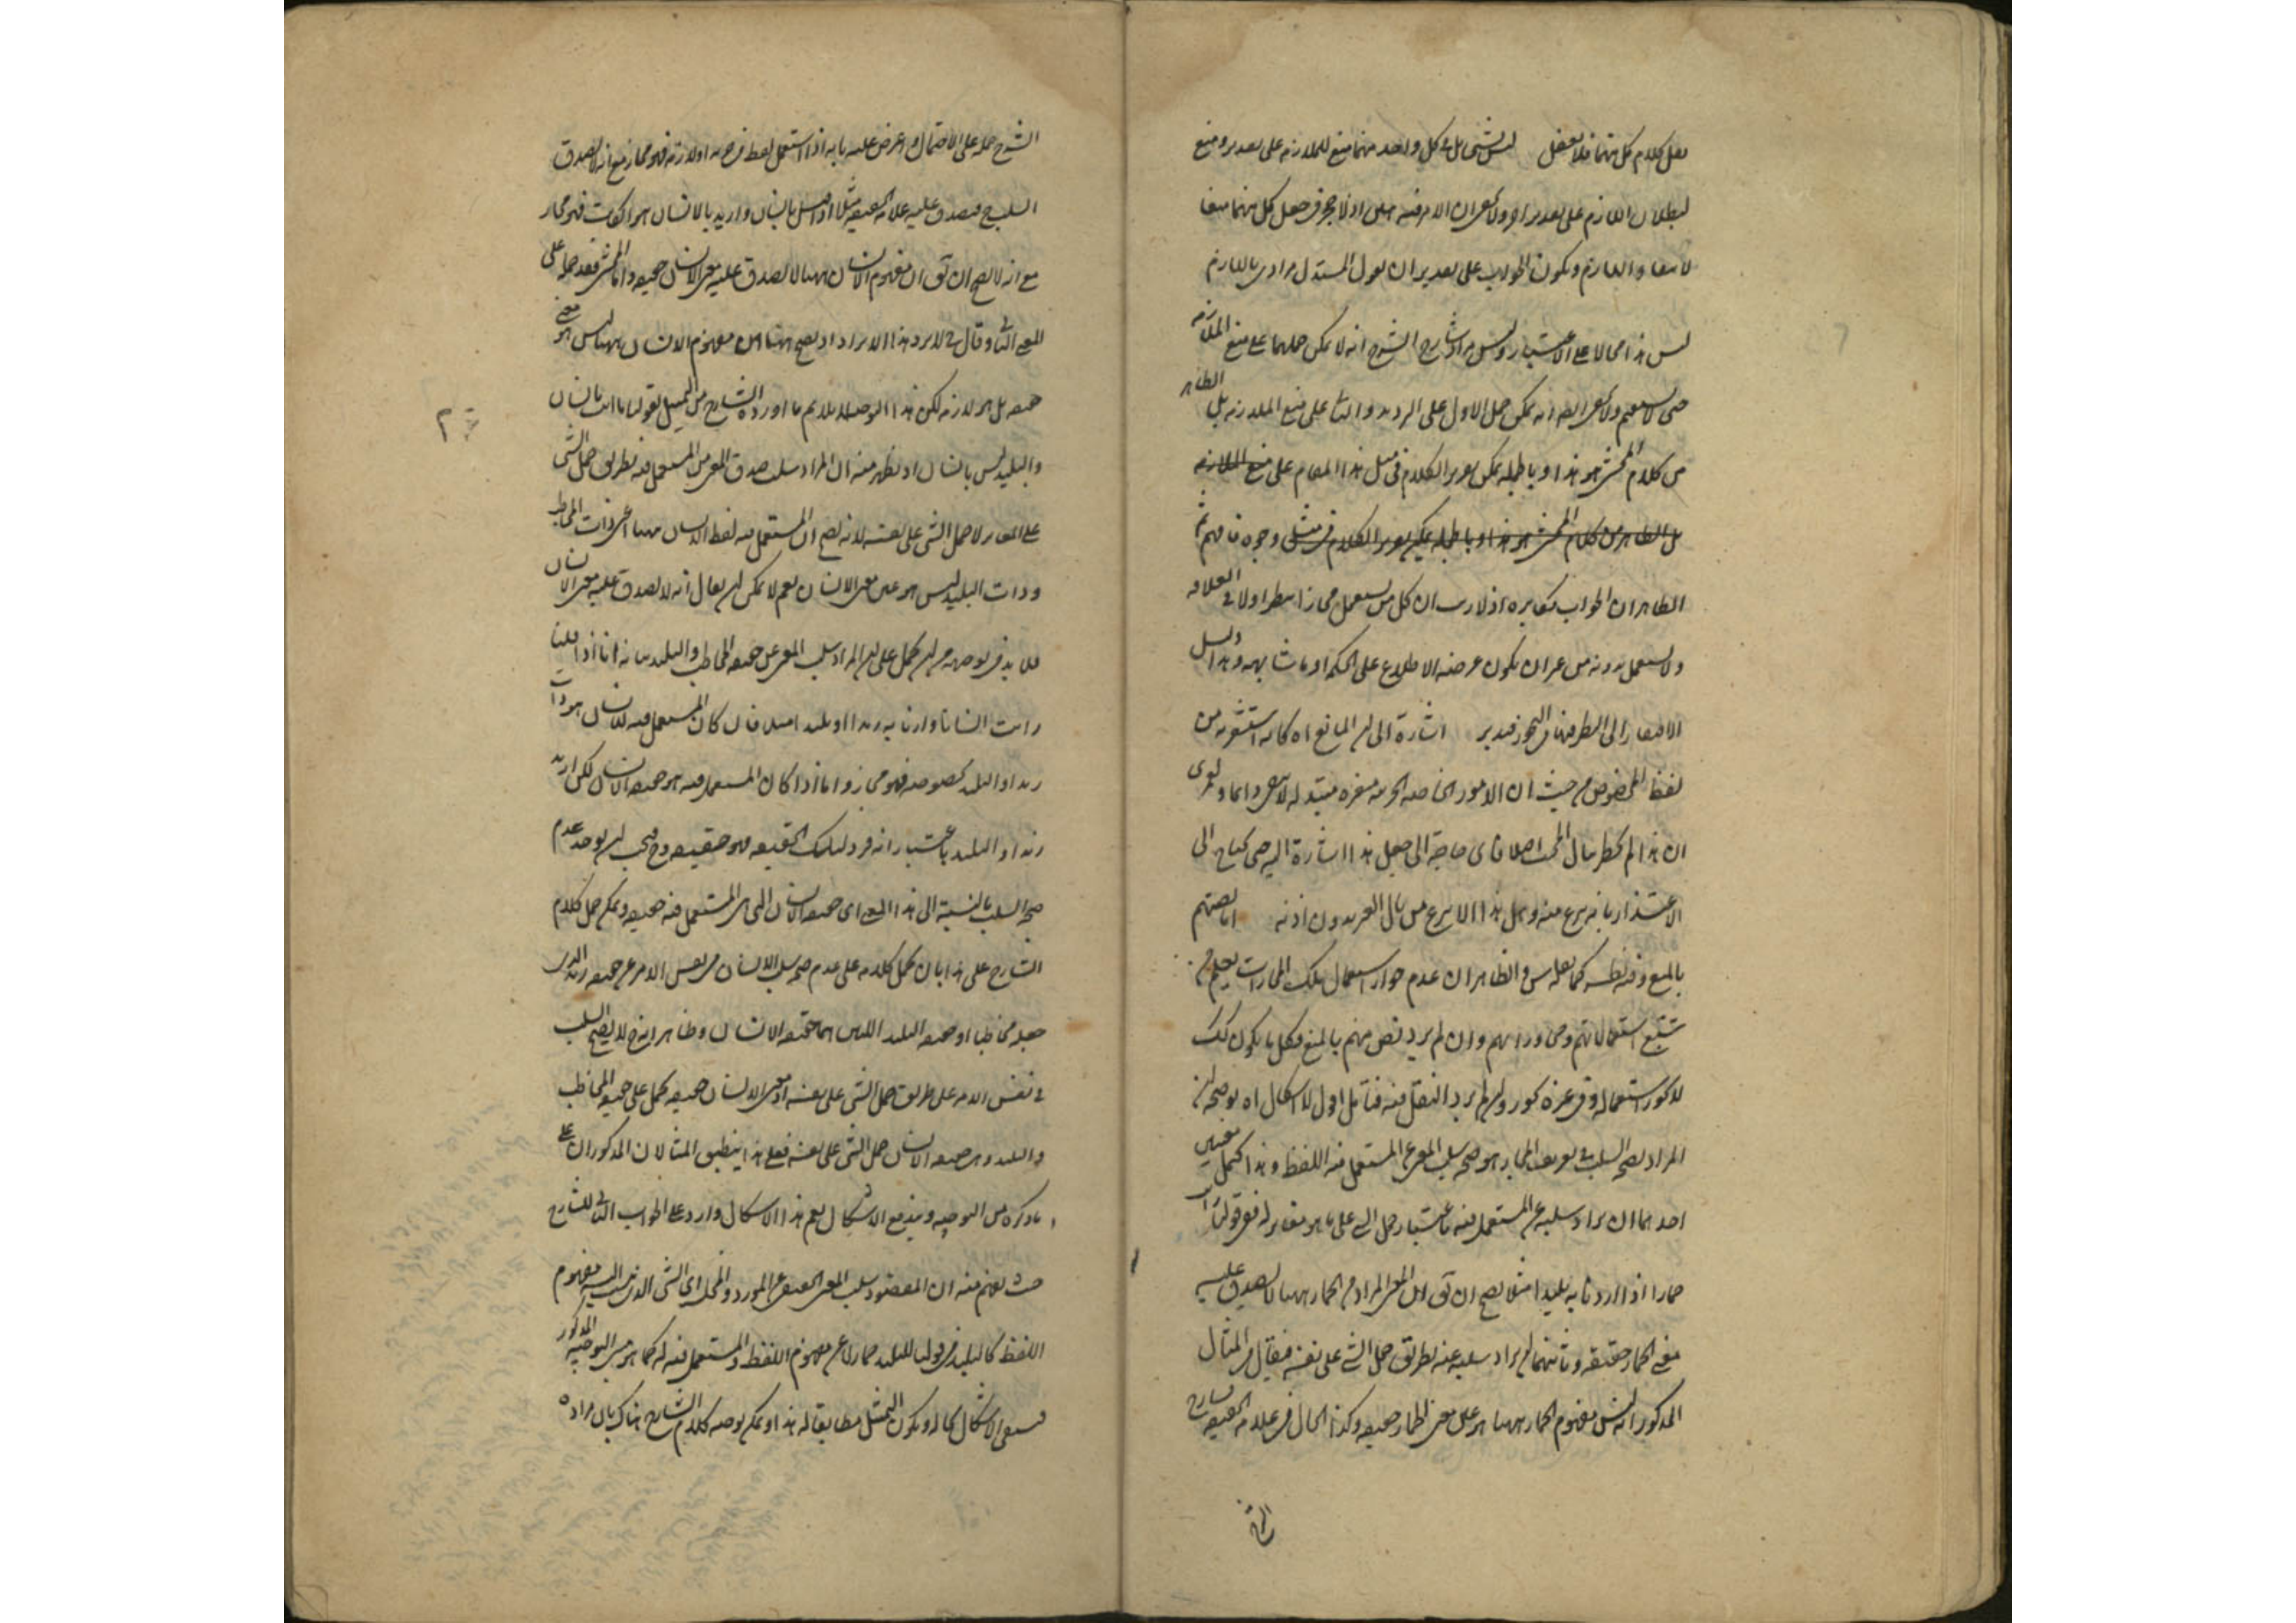 لعل كلام كل منهما فلا تغفل ليس بشيء بل في كل واحد منهما منع للملازمة على تقدير ومنع
لبطلان اللازم على تقدير اخر ولا يخفى ان الامر فيه هين اذ لا حجر في جعل كل منهما منعا
لانتفاء اللازم ويكون الجواب على تقدير ان يقول المستدل مرادي باللازم
ليس هذا محالا على الاعتبار وليس مراد شارح الشرح انه لا يمكن حملهما على منع الملازمة
حتى لا يستقيم ولا يخفى ايضا انه يمكن حمل الاول على الترديد والثاني على منع الملازمة بل الظاهر
من كلام المحشي هو هذا وبالجملة يمكن تقرير الكلام في مثل هذا المقام على منع الملازمة
بل الظاهر من كلام المحشي هو هذا وبالجملة يمكن تقرير الكلام في مثله وجوه فافهم ثم
الظاهر ان الجواب مكابرة اذ لا ريب ان كل من يستعمل مجازا ينظر اولا في العلاقة
ولا يستعمل بدونه من غير ان يكون غرضه الاطلاع على الحكمة او ما شابهه وهذا دليل
الافتقار الى النظر فيها في التجوز فتدبر اشارة الى ان المانع اه كانه استشعر من
لفظ المخصوص من حيث ان الامور الخاصة الجزئية متغيرة متبدلة لا يبقى دائما ولعمري
ان هذا لم يخطر ببال المحشي اصلا فاي حاجة الى جعل هذا اشارة اليه حتى يحتاج الى
الاعتذار بانه تبرع منه وهل هذا الا تبرع من مال الغير بدون اذنه اما نصهم
بالمنع وفيه نظر كما نقله س والظاهر ان عدم جواز استعمال تلك المجازات يعلم من
تتبع استعمالاتهم ومحاوراتهم وان لم يرد نص منهم بالمنع فكل ما يكون كك
لا يجوز استعماله وفي غيره يجوز وان لم يرد النقل فيه فتأمل اقول لا اشكال اه توضيحه ان
المراد بصحة السلب في تعريف المجاز هو صحة سلب المعنى عن المستعمل فيه اللفظ وهذا يحتمل معنيين
احدهما ان يراد سلبه عن المستعمل فيه باعتبار حمل الشيء على ما هو مغاير له ففي قولنا رأيت
حمارا اذا اردنا به بليدا مثلا يصح ان يق ان المعنى المراد من الحمار ههنا لا يصدق عليه
معنى الحمار حقيقة وثانيهما ان يراد سلبه عنه بطريق حمل الشيء على نفسه فيقال في المثال
المذكور انه ليس مفهوم الحمار ههنا هو عين معنى الحمار حقيقة وكذا الحال في علامة الحقيقة شارح
الشرح حمله على الاحتمال واعترض عليه بانه اذا استعمل لفظ في جزئه او لازمه فهو مجاز مع انه لا يصدق
السلب فيصدق عليه علامة الحقيقة مثلا اذا قيل انسان واريد بالانسان هو الكاتب فهو مجاز
مع انه لا يصح ان يق ان مفهوم الانسان ههنا لا يصدق عليه معنى الانسان حقيقة واما المحشي فقد حمله على
المعنى الثاني وقال في لا يرد هذا الايراد اذ يصح ههنا ان مفهوم الانسان ههنا ليس هو معنى
حقيقة بل هو لازمه لكن هذا التوجيه لا يلائم ما اورده الشارح من التمثيل بقولنا ما انت بانسان
والبليد ليس بانسان اذ يظهر منه ان المراد سلب صدق المعنى من المستعمل فيه بطريق حمل الشيء
على المغاير لا حمل الشيء على نفسه لانه يصح ان المستعمل فيه لفظ الانسان ههنا اعني ذات المخاطب
وذات البليد ليس هو عين معنى الانسان نعم لا يمكن ان يقال انه لا يصدق عليه معنى الانسان
فلا بد في توجيهه من ان يحمل على ان المراد سلب المعنى عن حقيقة المخاطب والبليد بيانه انا اذا قلنا
رايت انسانا واردنا به زيدا او بليدا مثلا فان كان المستعمل فيه للانسان هو ذات
زيد او البليد بخصوصه فهو مجاز واما اذا كان المستعمل فيه هو حقيقة الانسان لكن اريد
زيد او البليد باعتبار انه فرد لتلك الحقيقة فهو حقيقة وح يجب ان يوجد عدم
صحة السلب بالنسبة الى هذا المعنى اي حقيقة الانسان التي هي المستعمل فيه حقيقة ويمكن حمل كلام
الشارح على هذا بان يحمل كلامه على عدم صحة سلب الانسان في نفس الامر عن حقيقة زيد الذي
جعله مخاطبا او حقيقة البليد اللتين هما حقيقة الانسان وظاهر انه ح لا يصح السلب
في نفس الامر على طريق حمل الشيء على نفسه اذ معنى الانسان حقيقة يحمل على حقيقة المخاطب
والبليد وهي حقيقة الانسان حمل الشيء على نفسه فعلى هذا ينطبق المثالان المذكوران على
ما ذكره من التوجيه ويندفع الاشكال نعم هذا الاشكال وارد على الجواب الثاني للشارح
حيث يفهم منه ان المقصود سلب المعنى الحقيقي عن المورد والمحل اي الشيء الذي نسب اليه مفهوم
اللفظ كالبليد في قولنا للبليد حمار لا عن مفهوم اللفظ والمستعمل فيه له كما هو مبنى التوجيه المذكور
فيبقى الاشكال بحاله ويكون التمثيل مطابقا له هذا ويمكن توجيه كلام الشارح هناك بان مراده